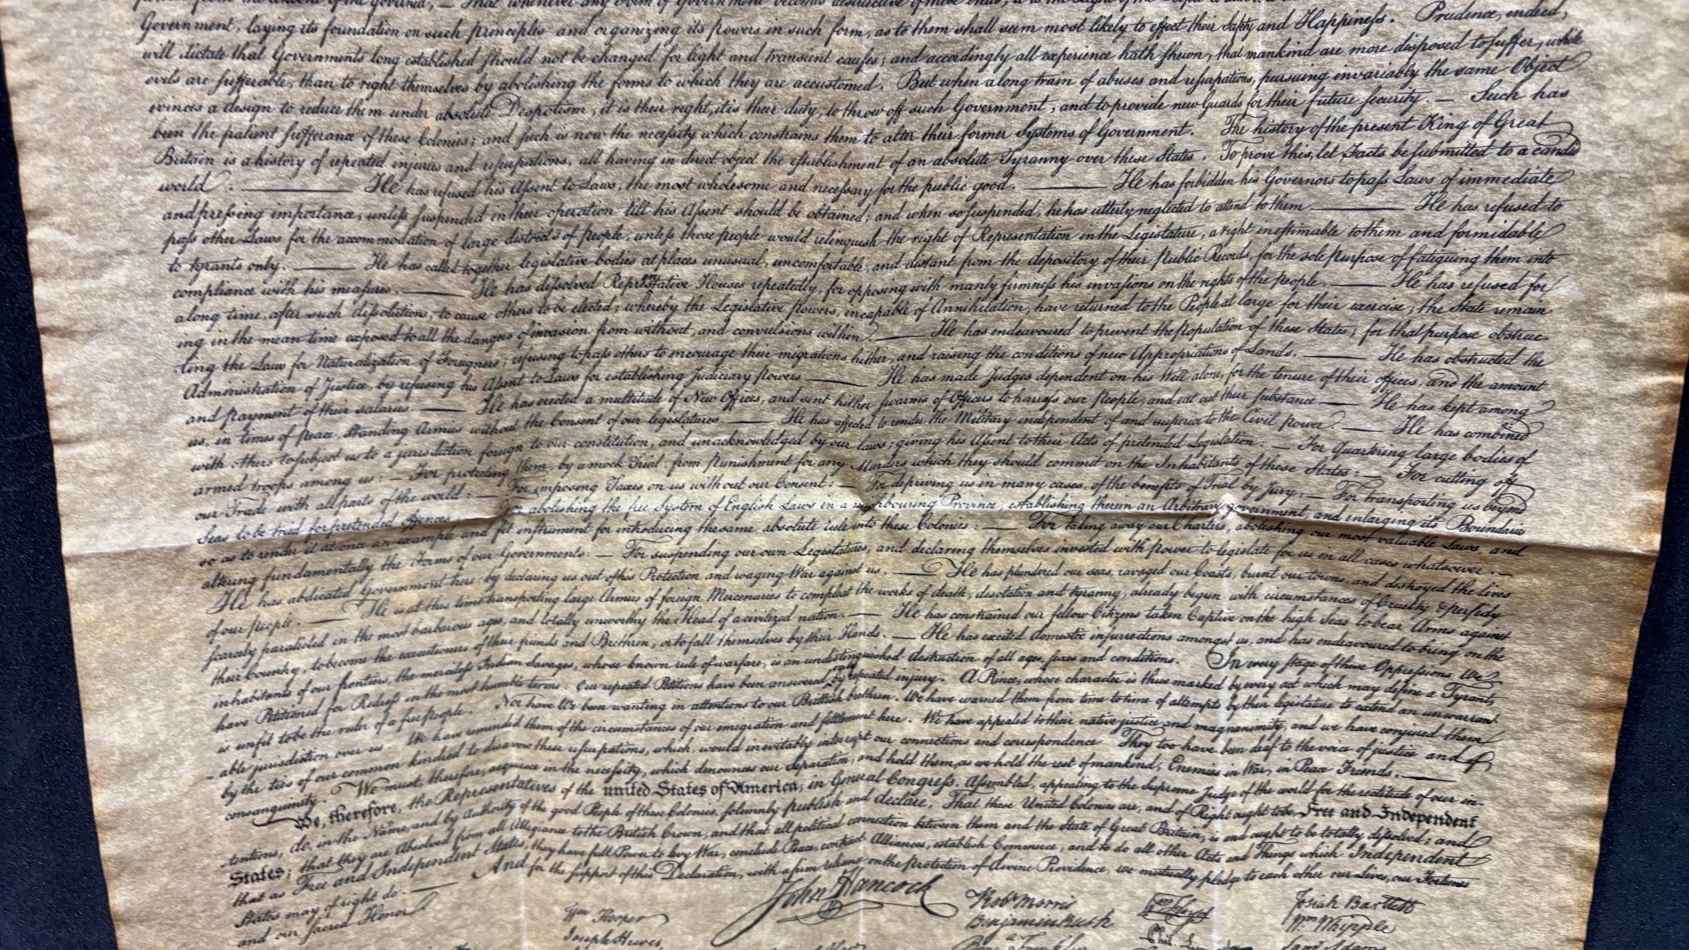 Government, laying its foundation on such principles and organizing its powers in such form, as to them shall seem most likely to effect their Safety and Happiness. Prudence, indeed,
will dictate that Governments long established should not be changed for light and transient causes; and accordingly all experience hath shewn, that mankind are more disposed to suffer, while
evils are sufferable, than to right themselves by abolishing the forms to which they are accustomed. But when a long train of abuses and usurpations, pursuing invariably the same Object
evinces a design to reduce them under absolute Despotism, it is their right, it is their duty, to throw off such Government, and to provide new Guards for their future security. — Such has
been the patient sufferance of these Colonies; and such is now the necessity which constrains them to alter their former Systems of Government. The history of the present King of Great
Britain is a history of repeated injuries and usurpations, all having in direct object the establishment of an absolute Tyranny over these States. To prove this, let Facts be submitted to a candid
world. — He has refused his Assent to Laws, the most wholesome and necessary for the public good. — He has forbidden his Governors to pass Laws of immediate
and pressing importance, unless suspended in their operation till his Assent should be obtained; and when so suspended, he has utterly neglected to attend to them. — He has refused to
pass other Laws for the accommodation of large districts of people, unless those people would relinquish the right of Representation in the Legislature, a right inestimable to them and formidable
to tyrants only. — He has called together legislative bodies at places unusual, uncomfortable, and distant from the depository of their Public Records, for the sole purpose of fatiguing them into
compliance with his measures. — He has dissolved Representative Houses repeatedly, for opposing with manly firmness his invasions on the rights of the people. — He has refused for
a long time, after such dissolutions, to cause others to be elected; whereby the Legislative powers, incapable of Annihilation, have returned to the People at large for their exercise; the State remain-
ing in the mean time exposed to all the dangers of invasion from without, and convulsions within. — He has endeavoured to prevent the population of these States; for that purpose obstruc-
ting the Laws for Naturalization of Foreigners; refusing to pass others to encourage their migrations hither, and raising the conditions of new Appropriations of Lands. — He has obstructed the
Administration of Justice, by refusing his Assent to Laws for establishing Judiciary powers. — He has made Judges dependent on his Will alone, for the tenure of their offices, and the amount
and payment of their salaries. — He has erected a multitude of New Offices, and sent hither swarms of Officers to harrass our people, and eat out their substance. — He has kept among
us, in times of peace, Standing Armies without the Consent of our legislatures. — He has affected to render the Military independent of and superior to the Civil power. — He has combined
with others to subject us to a jurisdiction foreign to our constitution, and unacknowledged by our laws; giving his Assent to their Acts of pretended Legislation: — For Quartering large bodies of
armed troops among us: — For protecting them, by a mock Trial, from punishment for any Murders which they should commit on the Inhabitants of these States: — For cutting off
our Trade with all parts of the world: — For imposing Taxes on us without our Consent: — For depriving us in many cases, of the benefits of Trial by Jury: — For transporting us beyond
Seas to be tried for pretended offences — abolishing the free System of English Laws in a neighbouring Province, establishing therein an Arbitrary government, and enlarging its Boundaries
so as to render it at once an example and fit instrument for introducing the same absolute rule into these Colonies: — For taking away our Charters, abolishing our most valuable Laws, and
altering fundamentally the Forms of our Governments: — For suspending our own Legislatures, and declaring themselves invested with power to legislate for us in all cases whatsoever. —
He has abdicated Government here, by declaring us out of his Protection and waging War against us. — He has plundered our seas, ravaged our Coasts, burnt our towns, and destroyed the lives
of our people. — He is at this time transporting large Armies of foreign Mercenaries to compleat the works of death, desolation and tyranny, already begun with circumstances of Cruelty & perfidy
scarcely paralleled in the most barbarous ages, and totally unworthy the Head of a civilized nation. — He has constrained our fellow Citizens taken Captive on the high Seas to bear Arms against
their Country, to become the executioners of their friends and Brethren, or to fall themselves by their Hands. — He has excited domestic insurrections amongst us, and has endeavoured to bring on the
inhabitants of our frontiers, the merciless Indian Savages, whose known rule of warfare, is an undistinguished destruction of all ages, sexes and conditions. In every stage of these Oppressions We
have Petitioned for Redress in the most humble terms: Our repeated Petitions have been answered by repeated injury. A Prince, whose character is thus marked by every act which may define a Tyrant,
is unfit to be the ruler of a free people. Nor have We been wanting in attentions to our Brittish brethren. We have warned them from time to time of attempts by their legislature to extend an unwarrant-
able jurisdiction over us. We have reminded them of the circumstances of our emigration and settlement here. We have appealed to their native justice and magnanimity, and we have conjured them
by the ties of our common kindred to disavow these usurpations, which, would inevitably interrupt our connections and correspondence They too have been deaf to the voice of justice and of
consanguinity. We must, therefore, acquiesce in the necessity, which denounces our Separation, and hold them, as we hold the rest of mankind, Enemies in War, in Peace Friends. —
We, therefore, the Representatives of the united States of America, in General Congress, Assembled, appealing to the Supreme Judge of the world for the rectitude of our in-
tentions, do, in the Name, and by Authority of the good People of these Colonies, solemnly publish and declare, That these United Colonies are, and of Right ought to be Free and Independent
States; that they are Absolved from all Allegiance to the British Crown, and that all political connection between them and the State of Great Britain, is and ought to be totally dissolved; and
that as Free and Independent States, they have full Power to levy War, conclude Peace, contract Alliances, establish Commerce, and to do all other Acts and Things which Independent
States may of right do. — And for the support of this Declaration, with a firm reliance on the protection of divine Providence, we mutually pledge to each other our Lives, our Fortunes
and our sacred Honor
John Hancock
Robt Morris
Josiah Bartlett
Wm Hooper
Benjamin Rush
Wm Whipple
Joseph Hewes,